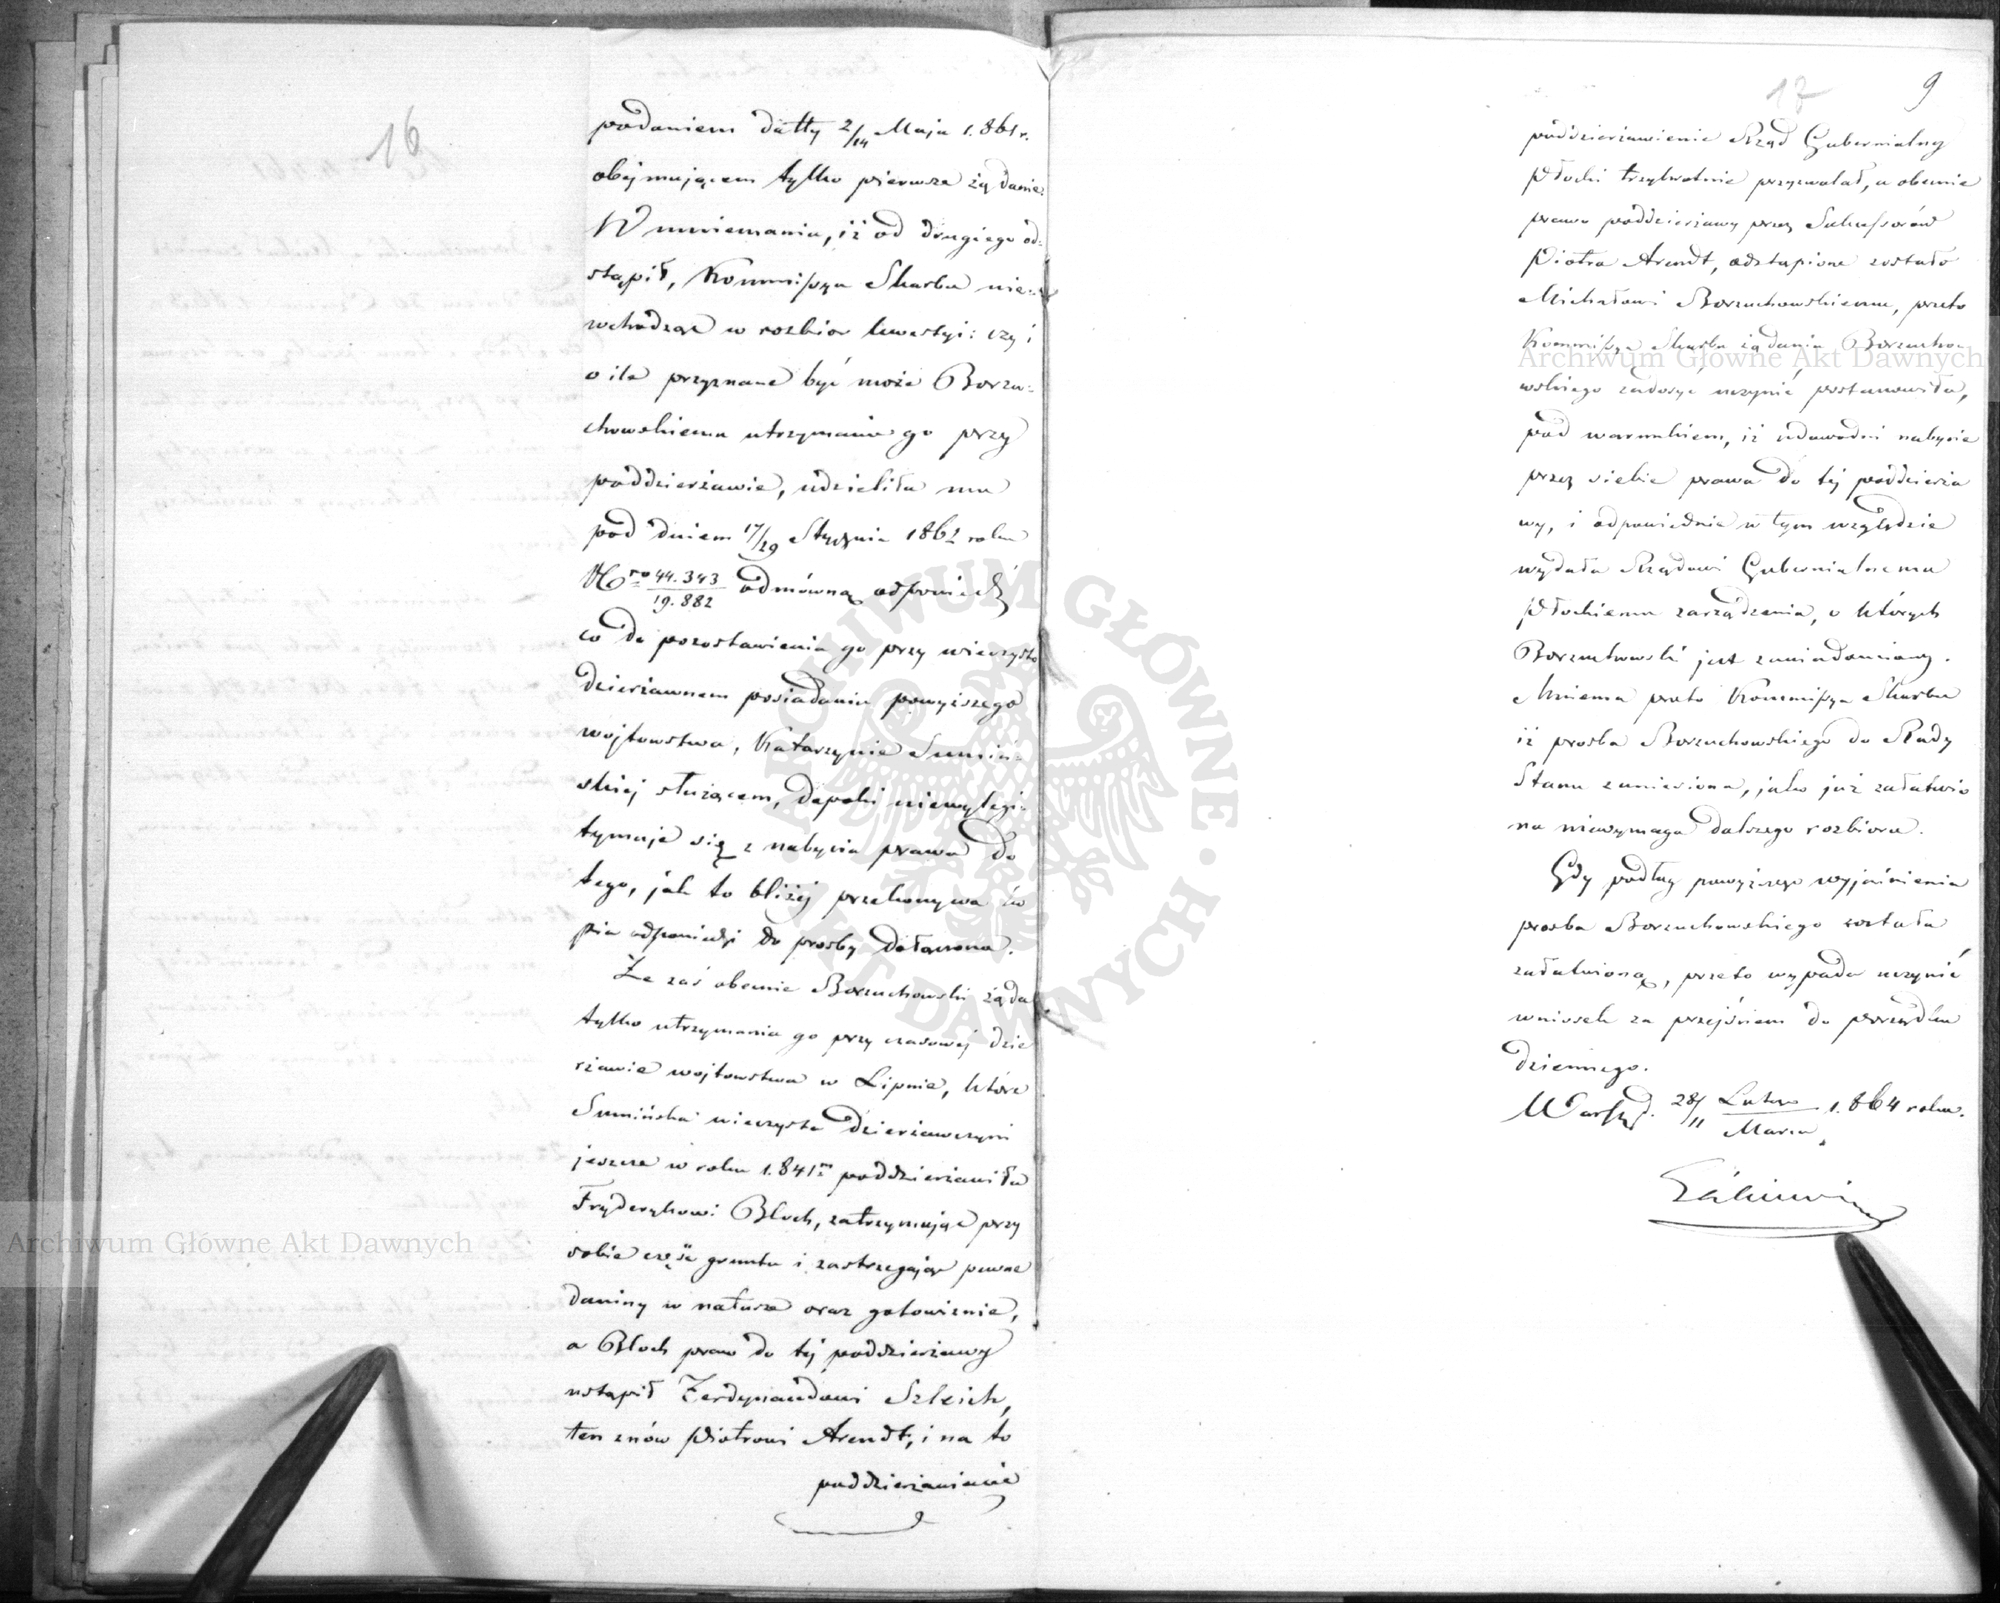 16
podaniem datty 2/14 Maja 1.861 r.
obejmującem tylko pierwsze żądanie.
W mniemaniu, iż od drugiego od-
stąpił, Kommissya Skarbu nie-
wchodząc w rozbiór kwestyi: czy i
o ile przyznane być może Borzu-
chowskiemu utrzymanie go przy
poddzierżawie, udzieliła mu
pod dniem 17/29 Stycznia 1862 roku
Nro 44.343/19.882 odmówną odpowiedź
co do pozostawienia go przy wieczysto
dzierżawnem posiadaniu powyższego
wójtowstwa, Katarzynie Sumiń-
skiej służącem, dopóki niewylegi-
tymuje się z nabycia prawa do
tego, jak to bliżej przekonywa ko
pia odpowiedzi do prośby dołączona.
Że zaś obecnie Borzuchowski żąda
tylko utrzymania go przy czasowej dzie
rżawie wojtowstwa w Lipnie, które
Sumińska wieczysta dzierżawczyni
jeszcze w roku 1.841m poddzierżawiła
Fryderykowi Bloch, zatrzymując przy
sobie część gruntu i zastrzegając pewne
daniny w naturze oraz gotowiznie,
a Bloch praw do tej poddzierżawy
ustąpił Ferdynandowi Szleich,
ten znów Piotrowi Arendt, i na to
poddzierżawienie
17 9
poddzierżawienie Rząd Gubernialny
Płocki trzykrotnie przyzwalał, a obecnie
prawo poddzierżawy przez Sukcessorów
Piotra Arendt, odstąpione zostało
Michałowi Borzuchowskiemu, przeto
Kommissya Skarbu żądaniu Borzucho-
wskiego zadosyć uczynić postanowiła,
pod warunkiem, iż udowodni nabycie
przez siebie prawa do tej poddzierża
wy, i odpowiednie w tym względzie
wydała Rządowi Gubernialnemu
Płockiemu zarządzenia, o których
Borzuchowski jest zawiadomiony.
Mniema przeto Kommissya Skarbu
iż prośba Borzuchowskiego do Rady
Stanu zaniesiona, jako już załatwio
na niewymaga dalszego rozbioru.
Gdy podług powyższego wyjaśnienia
prośba Borzuchowskiego została
załatwioną, przeto wypada uczynić
wniosek za przejściem do porządku
dziennego.
Warszwa d. 28/11 Lutego/Marca 1.864 roku.
Archiwum Główne Akt Dawnych
Archiwum Główne Akt Dawnych
ARCHIWUM GŁÓWNE
AKT DAWNYCH